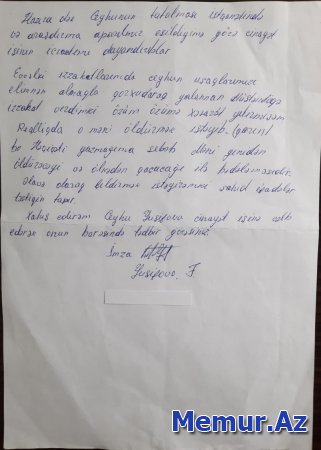 Hazıra də Ceyhunun tutulması istiqamətində
və araşdırma aparılmır əsildiyinə görə cinayət
işinin icraatını dayandırıblar
Əvvəlki izahatlarımda ceyhun uşaqlarımızı
əlimnən almağla qorxudaraq yalannan Müstəntiqə
izahat verdimki özüm özümə xəsarət yetirmişəm
Reallıqda o məni öldürmək istəyib. (qəsdən)
bu Həqiqəti yazmağıma səbəb Məni yenidən
öldürəcəyi və ölkədən qaçacağı ilə hədələməsidir.
Əlavə olaraq bildirmək istəyirəmki şahid ifadələr
təsdiqin tapır.
Xahiş edirəm Ceyhu Yusifova cinayət işinə cəlb
edərək onun barəsində tədbir görəsiniz.
İmza
Yusipova. F
Memur.Az